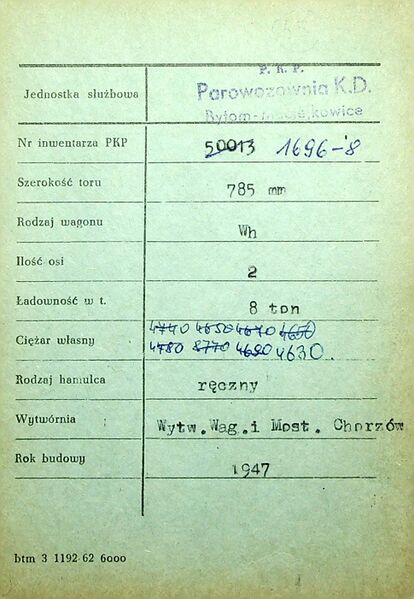 P. K. P.
Jednostka służbowa Parowozownia K.D.
Bytom-Maciejkowice
Nr inwentarza PKP 50013 1696-8
Szerokość toru 785 mm
Rodzaj wagonu Wh
Ilość osi 2
Ładowność w t. 8 ton
4740 4650 4670 4660
Ciężar własny 4780 8770 4690 4630.
Rodzaj hamulca ręczny
Wytwórnia Wytw.Wag.i Most. Chorzów
Rok budowy 1947
btm 3 1192 62 6000